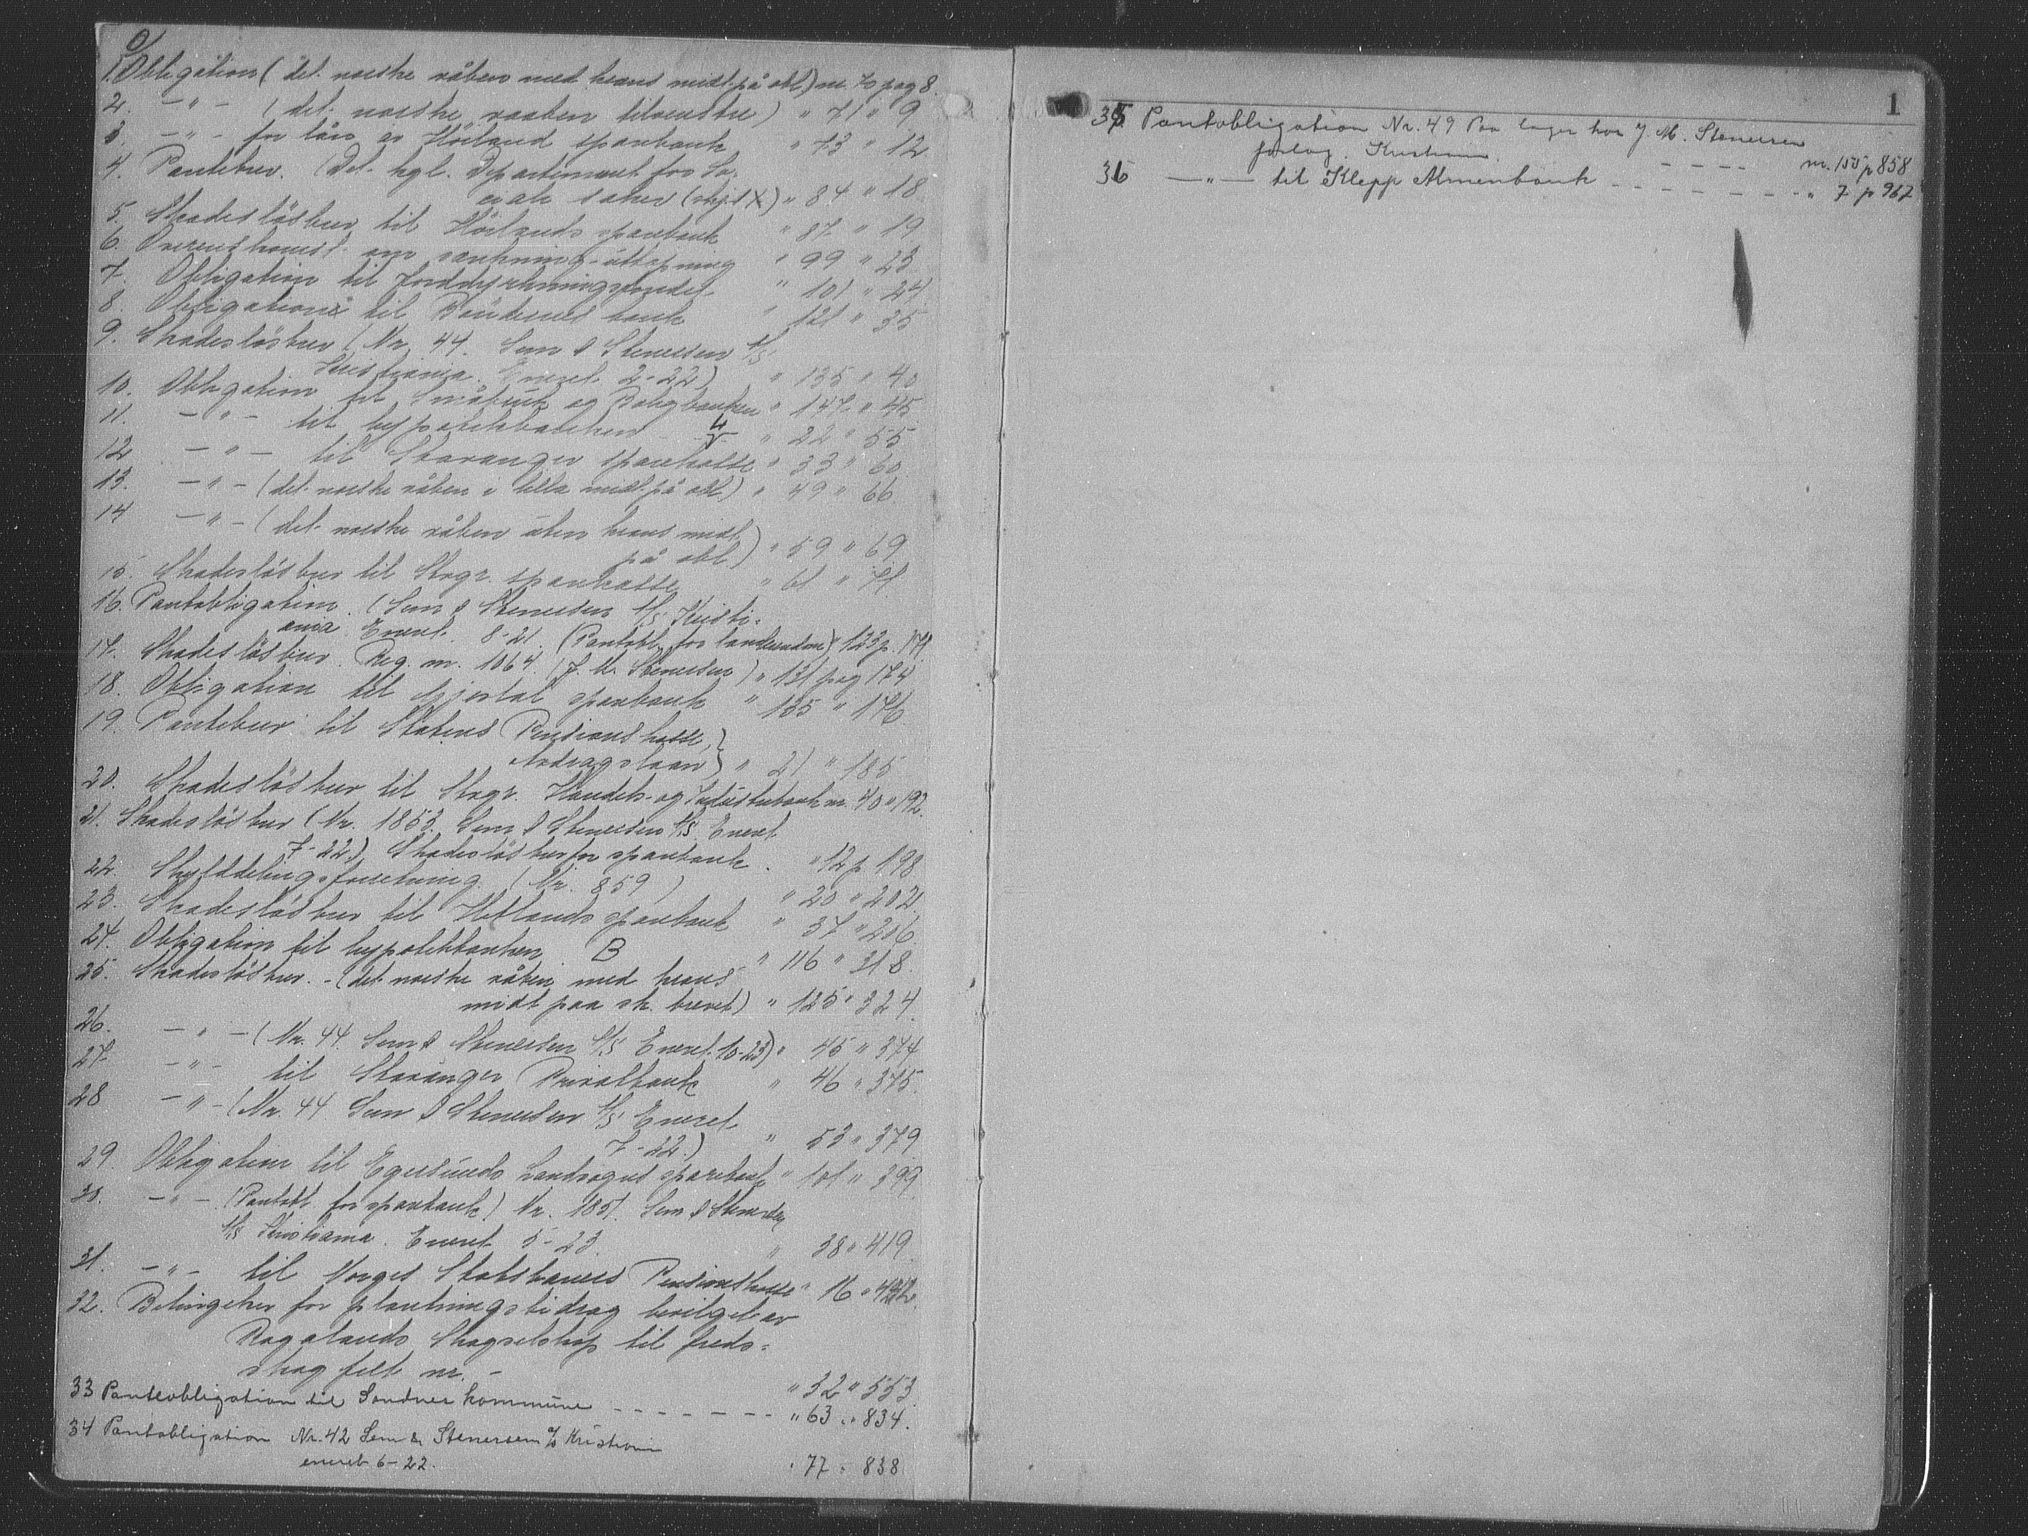 1. Obligation (det norske våben med krans midt på obl.) nr. 70 pag 8.
2. — " — (det norske vaaben tilvenstre) " 71 " 9
3. — " — for lån av Höiland sparebank " 73 " 12
4. Pantebrev. (Det kgl. Departement for So-
ciale saker (skj. X) " 84 " 18
5. Skadeslösbrev til Höilands sparebank " 87 " 19
6. Overenskomst om " 99 " 23
7. Obligation til Jorddyrkningsfondet " 101 " 24
8 Obligation til Böndernes bank " 121 " 35
9. Skadeslösbrev (Nr. 44. Sem & Stenersen A/S
Kristiania. Eneret 2-22) " 135 " 40
10. Obligation til Småbruk og Boligbanken " 147 " 45
11. — " — til hypotekbanken " 22 " 55
12 — " — til Stavanger sparekasse " 33 " 60
13. — " — (det norske våben i lilla midt på obl) " 49 " 66
14 — " — (det norske våben uten krans midt
på obl) " 59 " 69
15. Skadeslösbrev til Stvgr. sparekasse " 61 " 71
16. Pantobligation. (Sem & Stenersen A/S Kristi-
ania. Eneret. 8-21. (Pantobl. for landeiendom) " 123 p. 171
17. Skadeslösbrev. Reg. nr. 1064. (J. M. Stenersen) " 131 pag 174
18. Obligation til Gjestal sparebank " 135 " 176
19. Pantebrev til Statens Pensionskasse,
Avdragslaan " 21 " 185
20. Skadeslösbrev til Stvgr. Handels- og Industribank nr. 40 " 192
21. Skadeslösbrev (Nr. 1853. Sem & Stenersen A/S. Eneret
7-22) Skadeslösbrev for sparebank. " 12 p 198
22. Skylddelingsforretning (Nr. 859) " 20 " 202
23. Skadeslösbrev til Hetlands sparebank " 37 " 206
24. Obligation til hypotekbanken B " 116 " 318
25. Skadeslösbrev. - (det norske våben med krans
midt paa sk. brevet) " 125 " 324
26. — " — (Nr. 44. Sem & Stenersen A/S Eneret. 10-23) " 45 " 374
27. — " — til Stavanger Privatbank " 46 " 375
28 — " — (Nr. 44 Sem & Stenersen A/S Eneret
7-22.) " 53 " 379
29. Obligation til Egersunds Landsogns sparebank " 101 " 399
30. — " — (Pantobl. for sparebank) Nr. 1851. Sem & Stenersen
A/S Kristiania. Eneret 5-23. " 38 " 419
31. — " — til Norges Statsbaners Pensionskasse " 16 "
32. Betingelser for plantningsbidrag bevilget av
Rogalands Skogselskap til freds-
skog felt nr. — " 32 " 553
33 Panteobligation til Sandnes kommune - - - - - - " 63 " 834.
34 Pantobligation Nr. 42 Sem & Stenersen A/S Kristiania
eneret 6-22. " 77 " 838
1
35 Pantobligation Nr. 49 Paa lager hos J. M. Stenersen
forlag. Kristiania. - - - - nr. 155 p 858
36 — " — til Klepp Almenbank - - - - - - - " 7 p 967